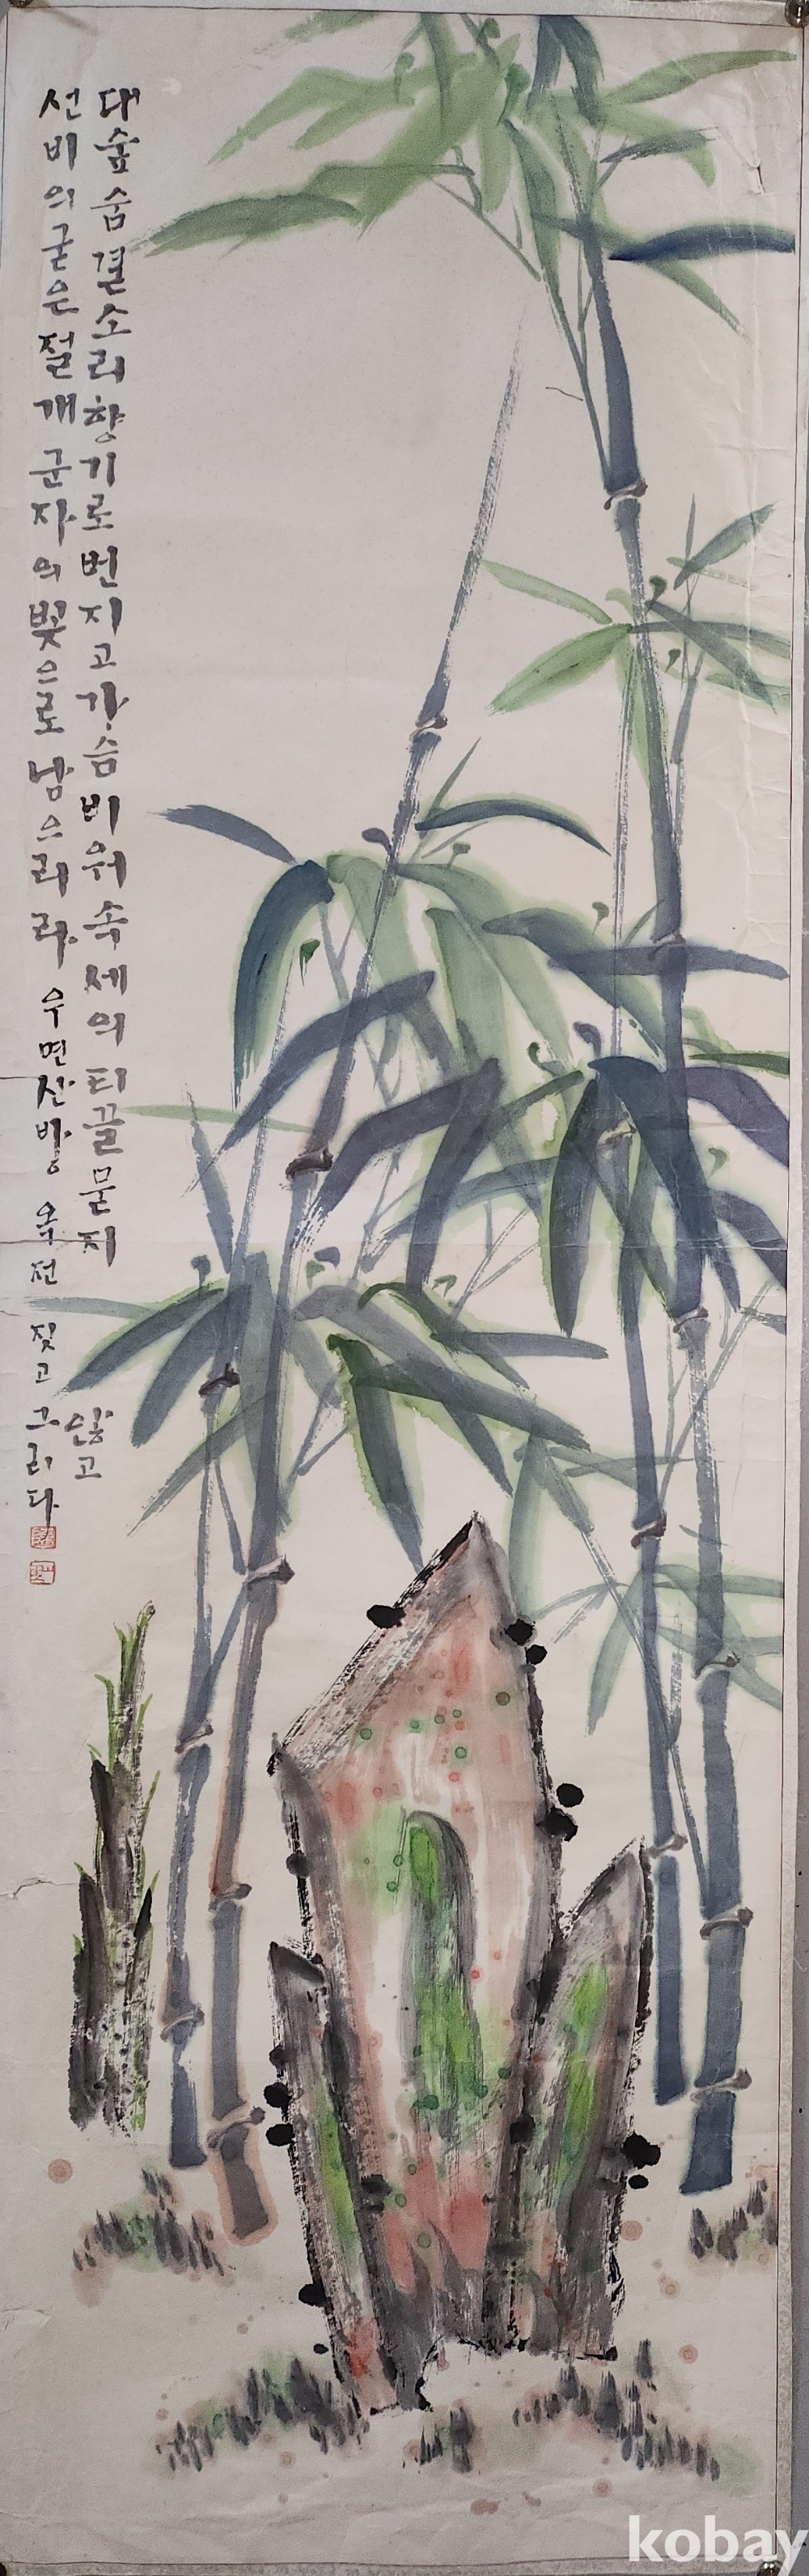 대숲숨결소리향기로번지고가슴비워속세의티끌묻지
않고
선비의굳은절개군자의빛으로남으리라 우면산방 옥전 짓고그리다
kobay